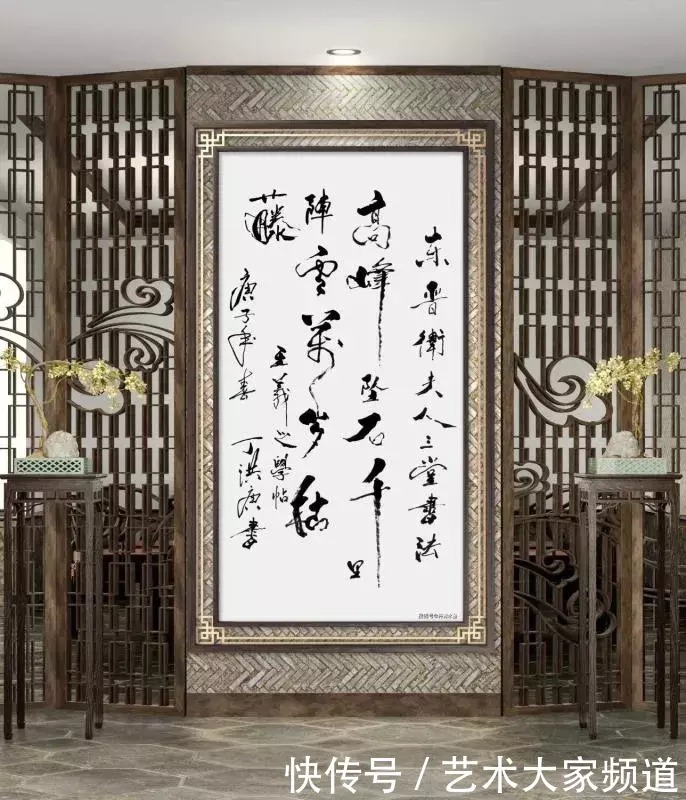 东晋衛夫人三堂書法
高峰坠石千里
陣雲萬岁枯
藤
王羲之學帖
庚子年春 丁洪庚書
快传号 / 艺术大家频道